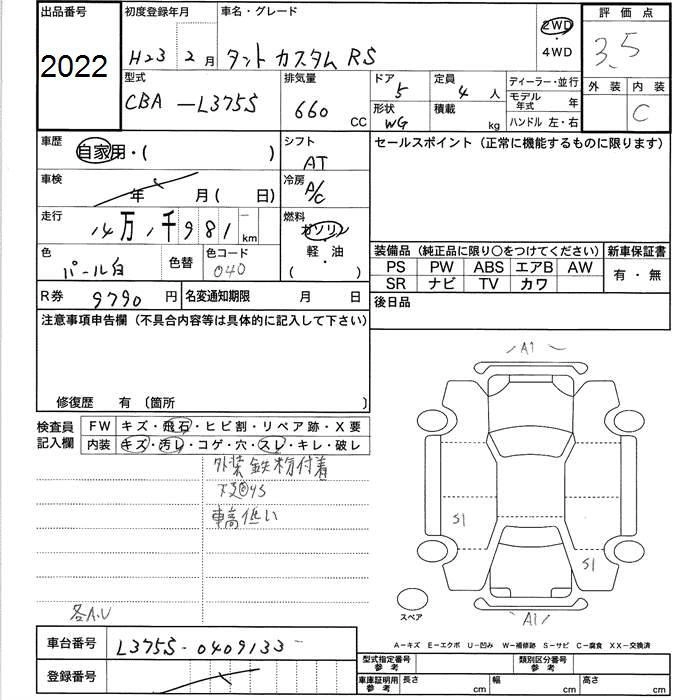 出品番号 初度登録年月 車名・グレード 評価点
2022 H23 2月 タント カスタム RS 2WD ・ 4WD 3.5
型式 排気量 ドア 定員 ディーラー・並行 外装 内装
CBA-L375S 660 CC 5 4人 モデル年式 年 C
形状 積載 WG kg ハンドル 左・右
車歴 自家用・( ) シフト AT セールスポイント (正常に機能するものに限ります)
車検 年 月 ( 日) 冷房 A/C
走行 14万1千981 km 燃料 ガソリン・軽・油 ( )
装備品 (純正品に限り○をつけてください) 新車保証書
色 パール白 色替 色コード 040
PS PW ABS エアB AW 有・無
SR ナビ TV カワ
R券 9790円 名変通知期限 月 日 後日品
注意事項申告欄 (不具合内容等は具体的に記入して下さい)
修復歴 有 〔箇所 〕
検査員記入欄 FW キズ・飛石・ヒビ割・リペア跡・X要
内装 キズ・汚レ・コゲ・穴・スレ・キレ・破レ
外装鉄粉付着
車高低い
各A.U
A1
S1
S1
A1
スペア
A-キズ E-エクボ U-凹み W-補修跡 S-サビ C-腐食 XX-交換済
車台番号 L375S-0409133
登録番号
型式指定番号 参考 類別区分番号 参考
車庫証明用 参考 長さ cm 幅 cm 高さ cm